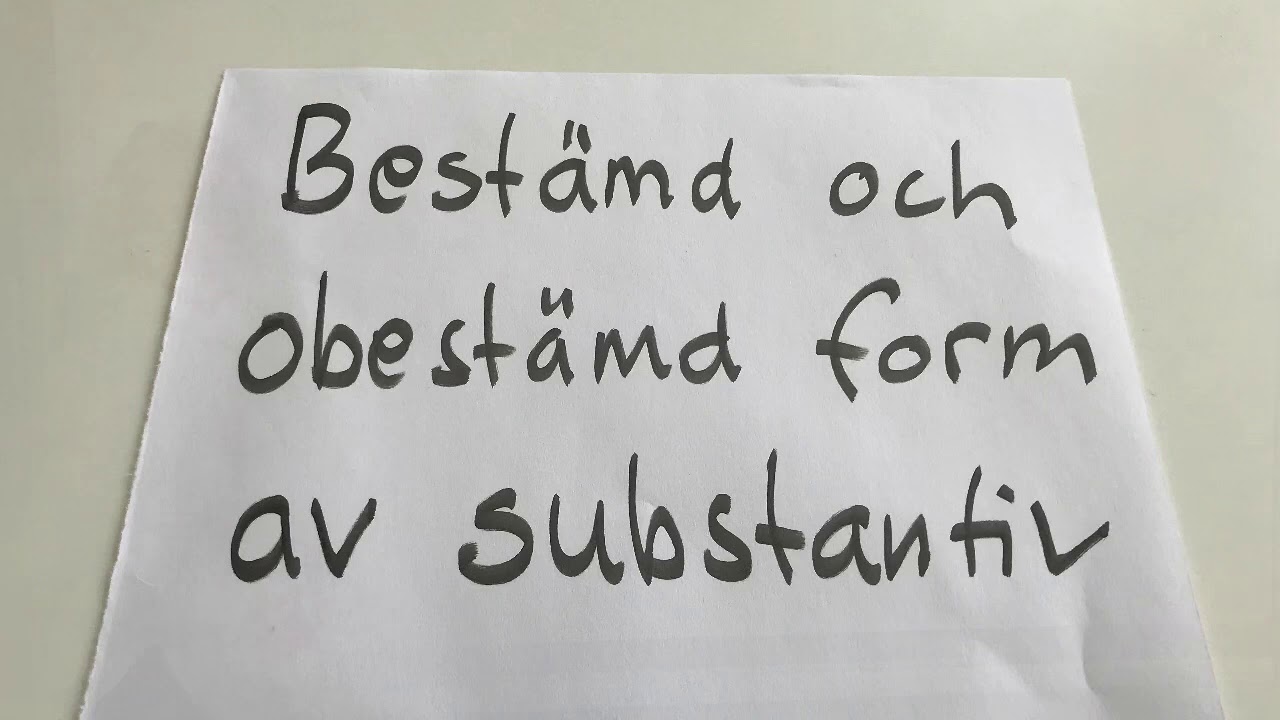 Bestämd och
obestämd form
av substantiv